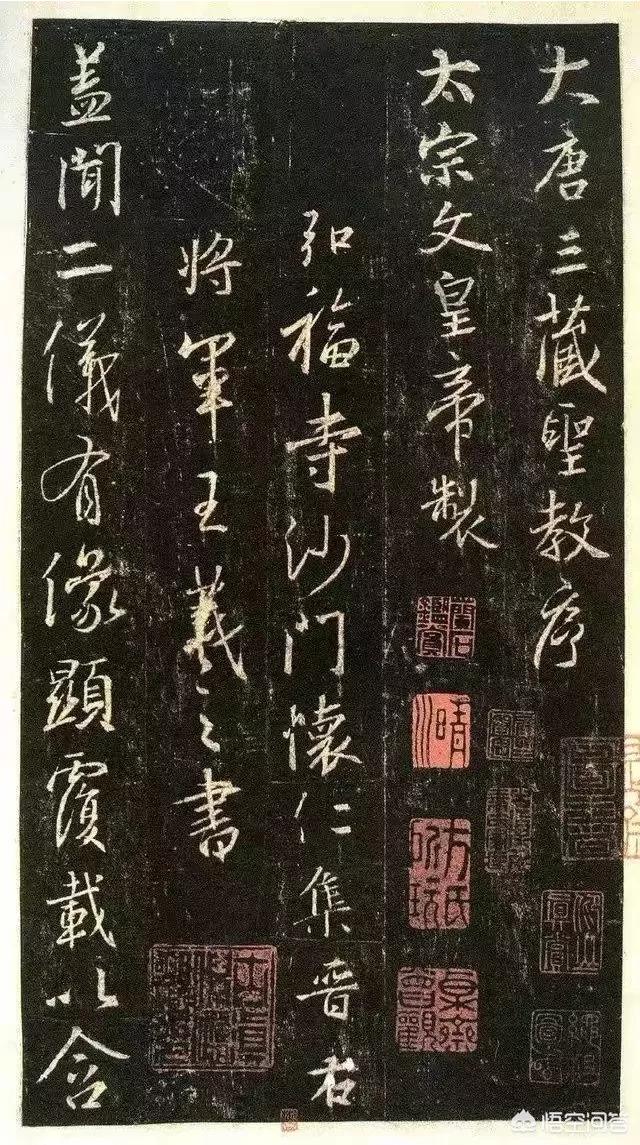 大唐三藏聖教序
太宗文皇帝製
弘福寺沙門懷仁集晉右
將軍王羲之書
蓋聞二儀有像顯覆載以含
晴川
悟空问答